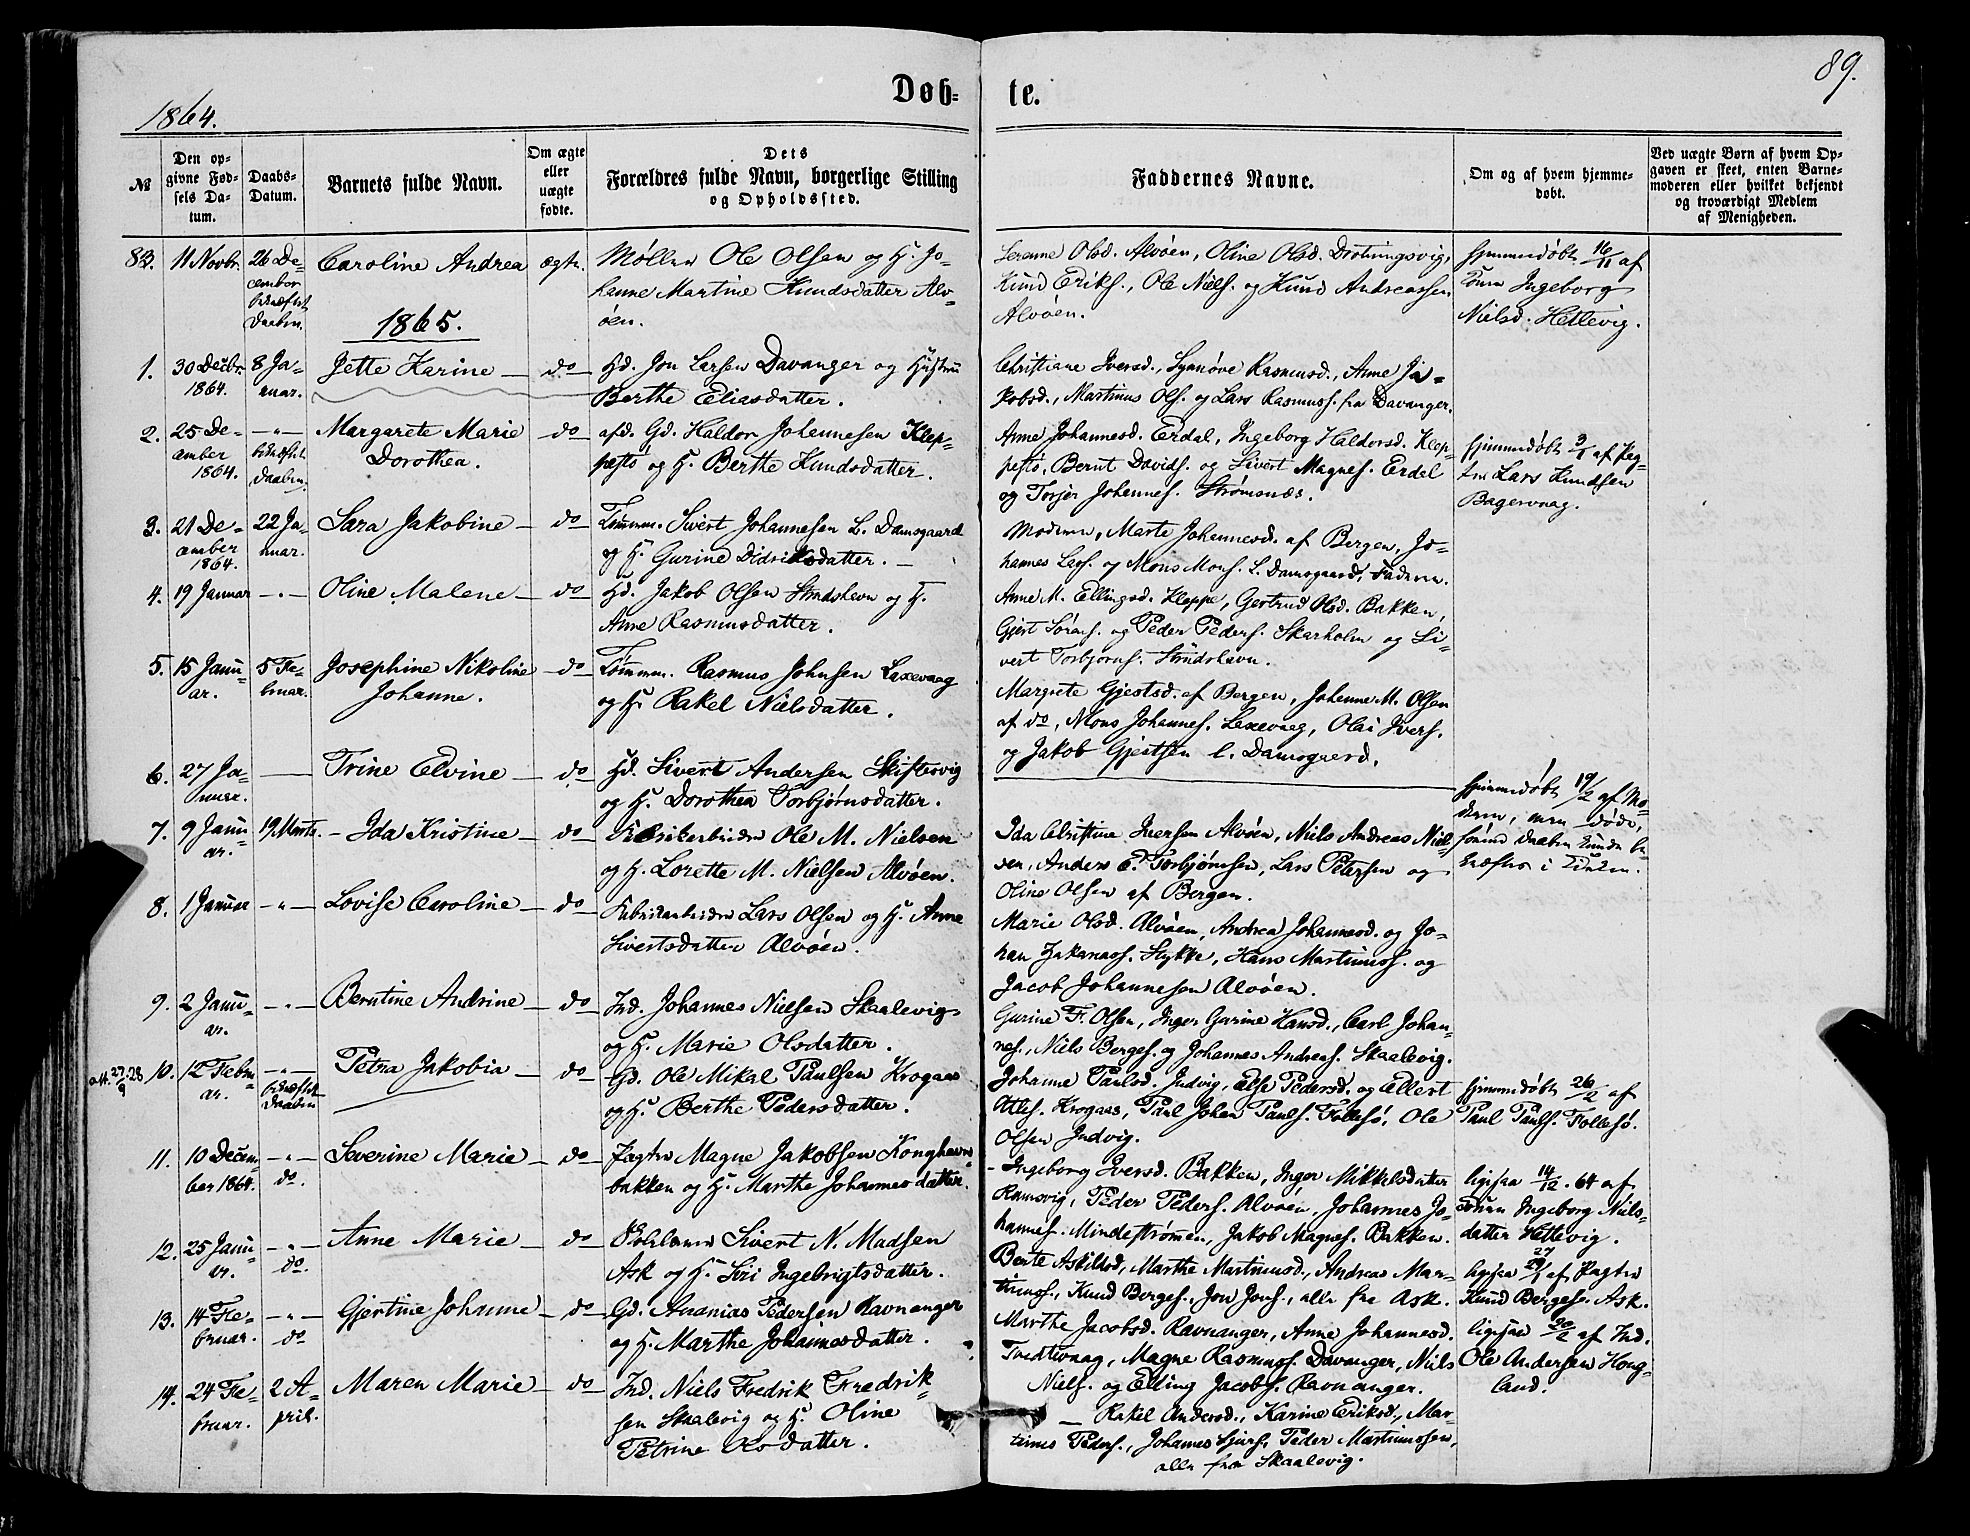 89.
Døb- te.
1864.
№
Den opgivne Fødsels Datum.
Daabs-Datum.
Barnets fulde Navn.
Om ægte eller uægte fødte.
Dets Forældres fulde Navn, borgerlige Stilling og Opholdssted.
Faddernes Navne.
Om og af hvem hjemmedøbt.
Ved uægte Børn af hvem Opgaven er skeet, enten Barnemoderen eller hvilket bekjendt og troværdigt Medlem af Menigheden.
83. 11 Novbr. 26 De-
cember
Daaben.
Caroline Andrea ægte.
Møller Ole Olsen og H. Jo-
hanne Martine Knudsdatter Alv-
øen.
Serenne Olsd. Alvøen, Oline Olsd. Drotningsvig,
Knud Eriks., Ole Niels. og Knud Andreassen
Alvøen.
hjemmedøbt 16/11 af
Ingeborg
Nielsd. Hettevig.
1865.
1. 30 Decbr. 1864. 8 Ja-
nuar.
Jette Karine — do —
Gd. Jon Larsen Davanger og Hustru
Berthe Eliasdatter.
Christiane Iversd., Synnøve Rasmusd., Anne Ja-
kobsd., Martinus Ols. og Lars Rasmuss. fra Davanger.
2. 25 De-
cember
1864. —"—
Daaben.
Margarete Marie
Dorothea. — do —
afd. Gd. Haldor Johannesen Klep-
pestø og H. Berthe Knudsdatter.
Anne Johannesd. Erdal, Ingeborg Haldorsd. Klep-
pestø, Bernt Davids. og Sivert Magnes. Erdal
og Torjer Johannes. Strømsnes.
hjemmedøbt 3/1 af
Lars Knudsen
3. 21 De-
cember
1864. 22 Ja-
nuar.
Sara Jakobine — do —
Tømmm. Sivert Johannesen L. Damsgaard
og H. Gurine Didriksdatter. —
Moderen, Marte Johannesd. af Bergen, Jo-
hannes Lars. og Mons Mons. L. Damsgaard, Faderen.
4. 19 Januar —"—
Oline Malene — do —
Gd. Jakob Olsen Strudshavn og H.
Anne Rasmusdatter.
Anne M. Ellingsd. Kleppe, Gertrud Olsd. Bakken,
Gjert Sørens. og Peder Peders. Skarholm og Si-
vert Torbjørns. Strudshavn.
5. 15 Janu-
ar. 5 Fe-
bruar.
Josephine Nikoline
Johanne. — do —
Tømmm. Rasmus Johnsen Laxevaag
og H. Rakel Nielsdatter.
Margrete Gjertsd. af Bergen, Johanne M. Olsen
af do, Mons Johannes. Laxevaag, Olai Ivers.
og Jakob Gjertsen l. Damsgaard.
6. 27 Ja-
nuar. —
Trine Elvine — do —
Gd. Sivert Andersen Skiftesvig
og H. Dorothea Torbjørnsdatter.
hjemmedøbt 19/2 af Mo-
deren, men døde,
førend Daaben kunde be-
kræftes i Kirken.
7. 9 Janu-
ar. 19 Marts.
Ida Kristine — do —
Fabrikarbeider Ole M. Nielsen
og H. Lorette M. Nielsen Alvøen.
Ida Christine Iversen Alvøen, Niels Andreas Niel-
sen, Anders E. Torbjørnsen, Lars Petersen og
Oline Olsen af Bergen.
8. 1 Januar —"—
Lovise Caroline — do —
Fabrikarbeider Lars Olsen og H. Anne
Sivertsdatter Alvøen.
Marie Olsd. Alvøen, Andrea Johannesd. og Jo-
han Zakarias. Hykke, Hans Martinus. og
Jacob Johannesen Alvøen.
9. 2 Janu-
ar. —"—
Berntine Andrine — do —
Ind. Johannes Nielsen Skaalevig
og H. Marie Olsdatter.
Gurine F. Olsen, Inger Gurine Hansd., Carl Johan-
nes., Niels Berges. og Johannes Andreas. Skaalevig.
att. 27/9 28
10. 12 Febru-
ar. —"—
Daaben
Petra Jakobia — do —
Gd. Ole Mikal Paulsen Krogaas
og H. Berthe Pedersdatter.
Johanne Paulsd. Indvig, Else Pedersd. og Ellert
Atles. Krogaas, Paul Johan Pauls. Follesø, Ole
Olsen Indvig.
hjemmedøbt 26/2 af
Paul Pauls. Follesø.
11. 10 Decem-
ber 1864. —"—
do.
Severine Marie — do —
Jægter Magne Jakobsen Konghavn-
bakken og H. Marthe Johannesdatter.
- Ingeborg Iversd. Bakken, Inger Mikkelsdatter
Ramsvig, Peder Peders. Alvøen, Johannes Jo-
hannes. Mindestrømmen, Jakob Magnes. Bakken.
ligesaa 14/12. 64 af
Ingeborg Niels-
datter Hettevig.
12. 25 Janu-
ar. —"—
do.
Anne Marie — do —
Sivert N. Madsen
Ask og H. Siri Ingebrigtsdatter.
Berte Askildsd, Marthe Martinusd., Andreas Mar-
tinus., Knud Berges., Jon Jons., alle fra Ask.
ligesaa 29/1 af Jægter
Knud Berges. Ask.
13. 14 Fe-
bruar. —"—
do
Gjertine Johanne — do —
Gd. Ananias Pedersen Ravnanger
og H. Marthe Johannesdatter.
Marthe Jacobsd. Ravnanger, Anne Johannesd.
Tveitevaag, Magne Rasmus. Davanger, Niels
Niels. og Elling Jacobs. Ravnanger.
ligesaa 20/2 af Ind.
Ole Andersen Hong-
land.
14. 24 Fe-
bruar. 2 A-
pril.
Maren Marie — do —
Ind. Niels Fredrik Fredrik-
sen Skaalevig og H. Oline
Petrine Olsdatter.
— Rakel Andersd., Karine Eriksd., Mar-
tinus Peders., Johannes Sjurs., Peder Martinussen,
alle fra Skaalevig.